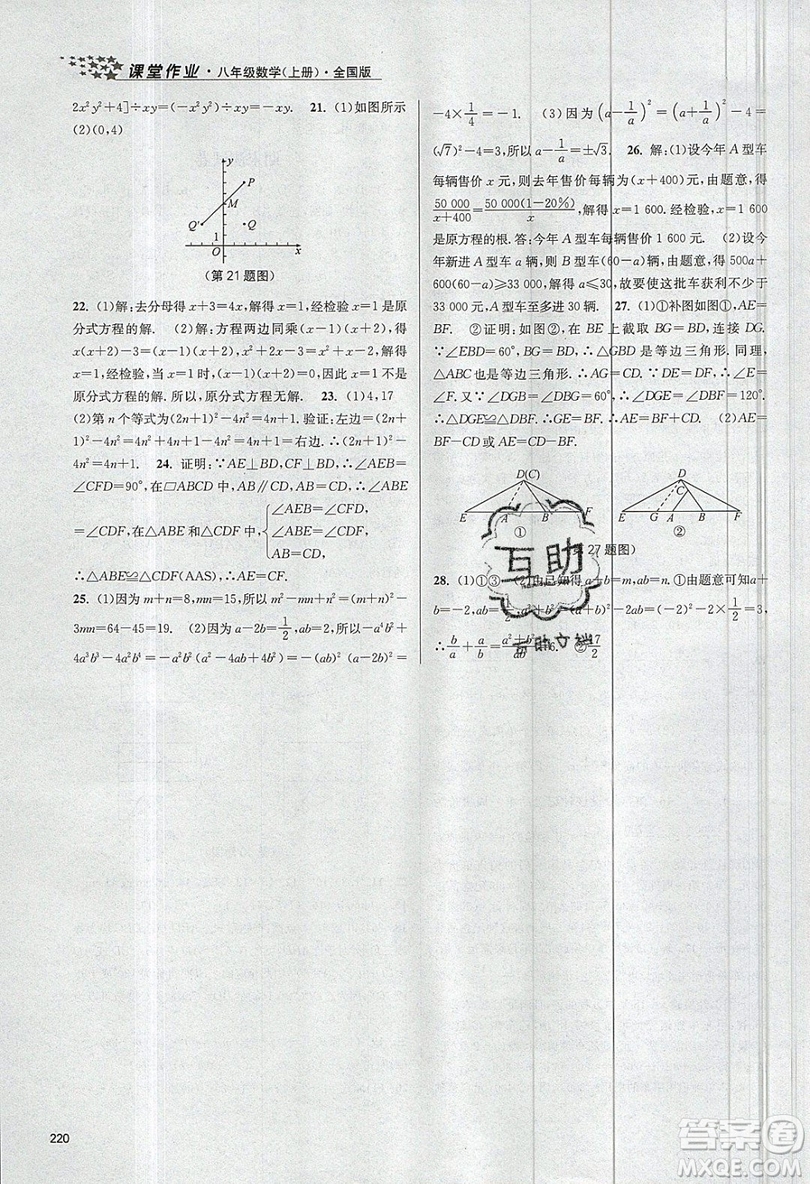 课堂作业·八年级数学(上册)·全国版
2x²y²+4]÷xy=(-x²y²)÷xy=-xy. 21. (1)如图所示
(2)(0,4)
y
P
M
Q′
Q
1
O
1
x
(第21题图)
22. (1)解:去分母得x+3=4x,解得x=1,经检验x=1是原
分式方程的解. (2)解:方程两边同乘(x-1)(x+2)得,
x(x+2)-(x-1)(x+2)=3,化简,得x+2=3,解得
x=1,经检验,当x=1时,(x-1)(x+2)=0,因此x=1不是
原分式方程的解.所以,原分式方程无解. 23. (1)4,17
(2)第n个等式为(2n+1)²-4n²=4n+1.验证:左边=(2n+
1)²-4n²=4n²+4n+1-4n²=4n+1=右边.∴(2n+1)²-
4n²=4n+1. 24. 证明:∵AE⊥BD,CF⊥BD,∴∠AEB=
∠CFD=90°,在▱ABCD中,AB∥CD,AB=CD,∴∠ABE
=∠CDF,在△ABE和△CDF中{∠AEB=∠CFD,
∠ABE=∠CDF,
AB=CD,
∴△ABE≌△CDF(AAS),∴∠BAE=∠DCF.
25. (1)因为m+n=8,mn=15,所以m²-mn+n²=(m+n)²-
3mn=64-45=19. (2)因为a-2b=1/2,ab=2,所以-a⁴b²+
4a³b³-4a²b⁴=-a²b²(a²-4ab+4b²)=-(ab)²(a-2b)²=
-4×1/4=-1. (3)因为(a-1/a)²=(a+1/a)²-4=
(√7)²-4=3,所以a-1/a=±√3. 26. 解:(1)设今年A型车
每辆售价x元,则去年售价每辆为(x+400)元,由题意,得
50 000/(x+400)=50 000(1-20%)/x,解得x=1 600.经检验,x=1 600
是原方程的根.答:今年A型车每辆售价1 600元. (2)设今
年新进A型车a辆,则B型车(60-a)辆,由题意,得500a+
600(60-a)≥33 000,解得a≤30,故要使这批车获利不少于
33 000元,A型车至多进30辆. 27. (1)①补图如图①,AE=
BF. ②证明:如图②,在BE上截取BG=BD,连接DG.
∵∠EBD=60°,BG=BD,∴△GBD是等边三角形.同理,
△ABC也是等边三角形.∴AG=CD,∵DE=DF,∴∠E=
∠F.又∵∠DGB=∠DBG=60°,∴∠DGE=∠DBF=120°.
∴△DGE≌△DBF.∴GE=BF.∴AE=BF+CD. (2)AE=
BF-CD或AE=CD-BF.
D(C)
E
A
B
F
①
D
C
E
G
A
B
F
②
第27题图)
28. (1)①③ (2)由已知得a+b=m,ab=n.①由题意可知a+
b=-2,ab=1/2,∴a²+b²=(a+b)²-2ab=4-2×1/2=3.
∴b/a+a/b=(a²+b²)/ab=6. ②17/2
互助
互助文档
220
答案圈
MXQE.COM